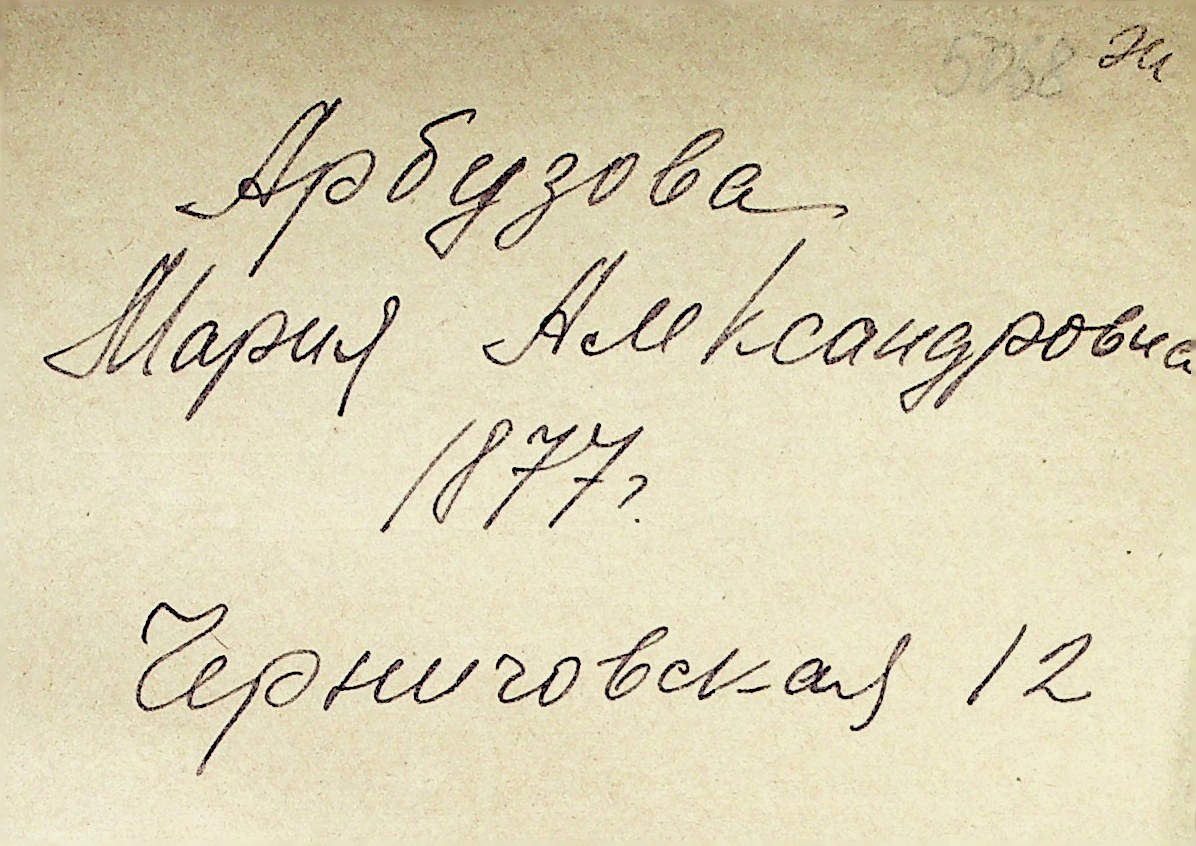 5058 эк
Арбузова
Мария Александровна
1877г.
Черниговская 12